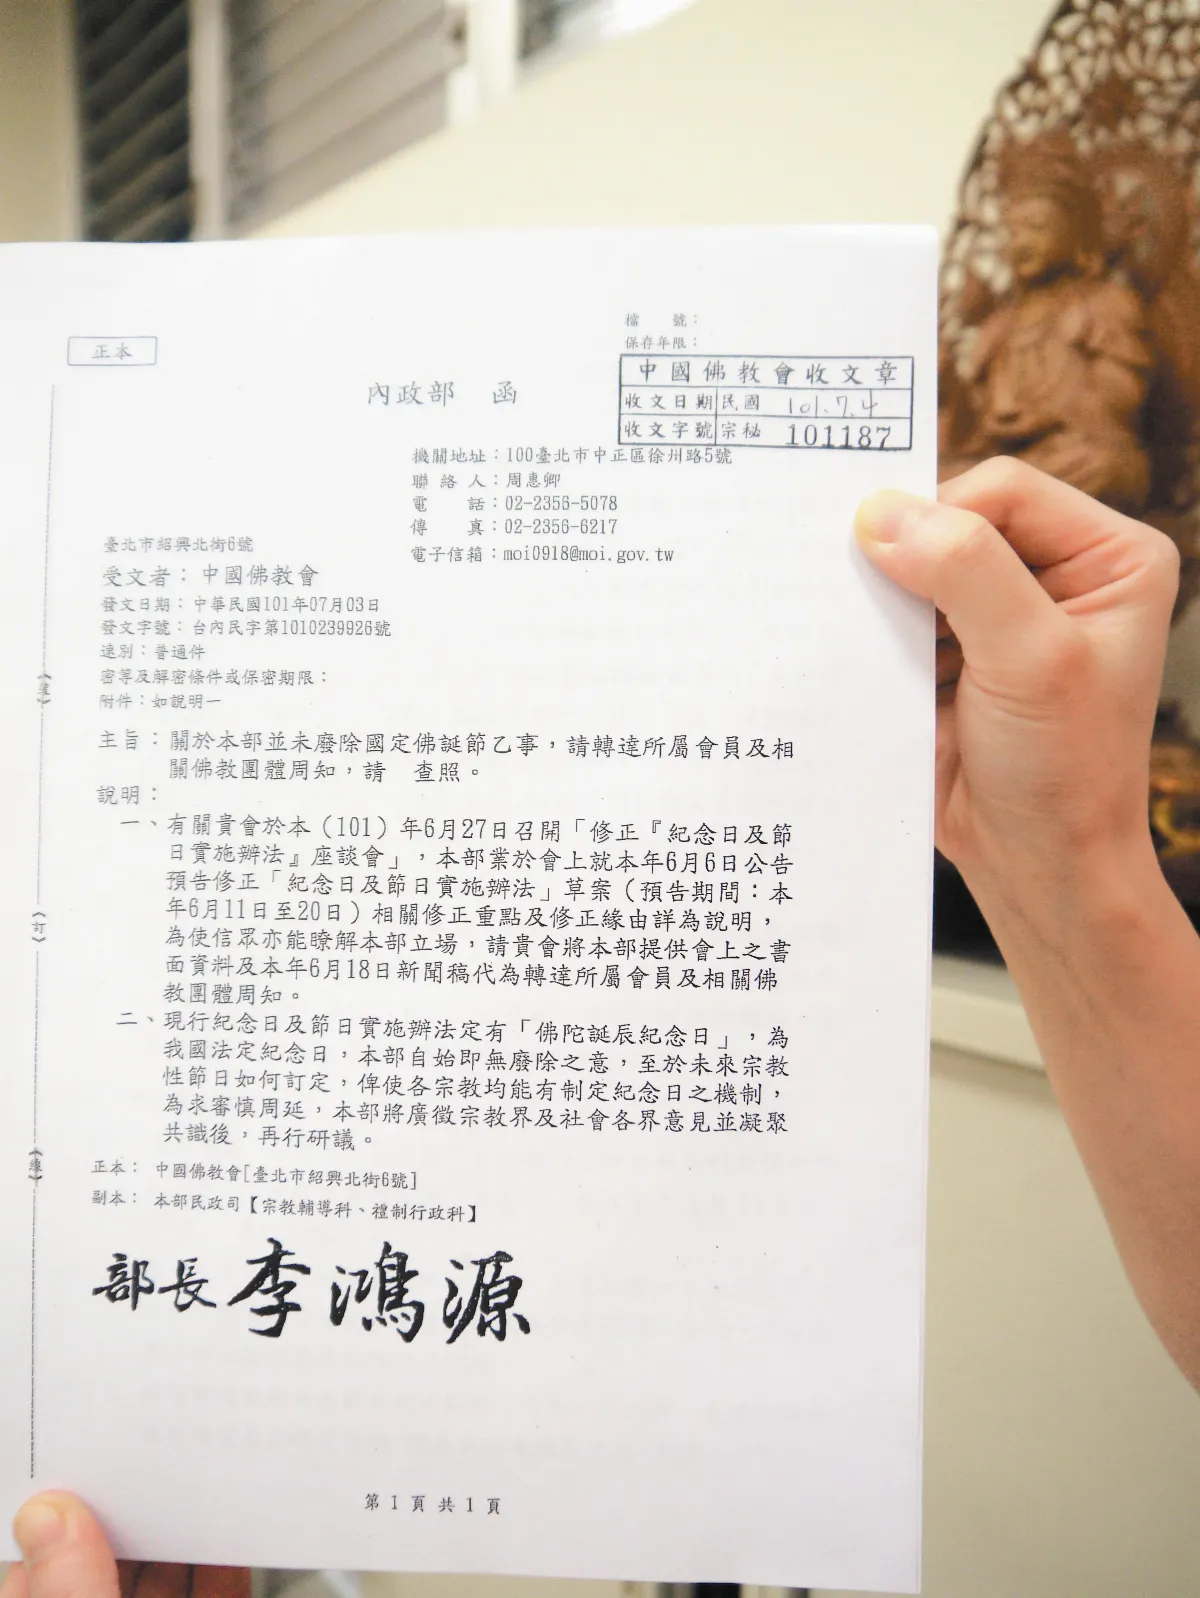 檔　號：
保存年限：
正本
中國佛教會收文章
收文日期 民國 101.7.4
收文字號 宗秘 101187
內政部　函
機關地址：100臺北市中正區徐州路5號
聯 絡 人：周惠卿
電　　話：02-2356-5078
傳　　真：02-2356-6217
電子信箱：moi0918@moi.gov.tw
臺北市紹興北街6號
受文者：中國佛教會
發文日期：中華民國101年07月03日
發文字號：台內民字第1010239926號
速別：普通件
密等及解密條件或保密期限：
附件：如說明一
主旨：關於本部並未廢除國定佛誕節乙事，請轉達所屬會員及相
關佛教團體周知，請　查照。
說明：
一、有關貴會於本（101）年6月27日召開「修正『紀念日及節
日實施辦法』座談會」，本部業於會上就本年6月6日公告
預告修正「紀念日及節日實施辦法」草案（預告期間：本
年6月11日至20日）相關修正重點及修正緣由詳為說明，
為使信眾亦能瞭解本部立場，請貴會將本部提供會上之書
面資料及本年6月18日新聞稿代為轉達所屬會員及相關佛
教團體周知。
二、現行紀念日及節日實施辦法定有「佛陀誕辰紀念日」，為
我國法定紀念日，本部自始即無廢除之意，至於未來宗教
性節日如何訂定，俾使各宗教均能有制定紀念日之機制，
為求審慎周延，本部將廣徵宗教界及社會各界意見並凝聚
共識後，再行研議。
正本：中國佛教會[臺北市紹興北街6號]
副本：本部民政司【宗教輔導科、禮制行政科】
部長 李鴻源
第 1 頁 共 1 頁
裝
訂
線